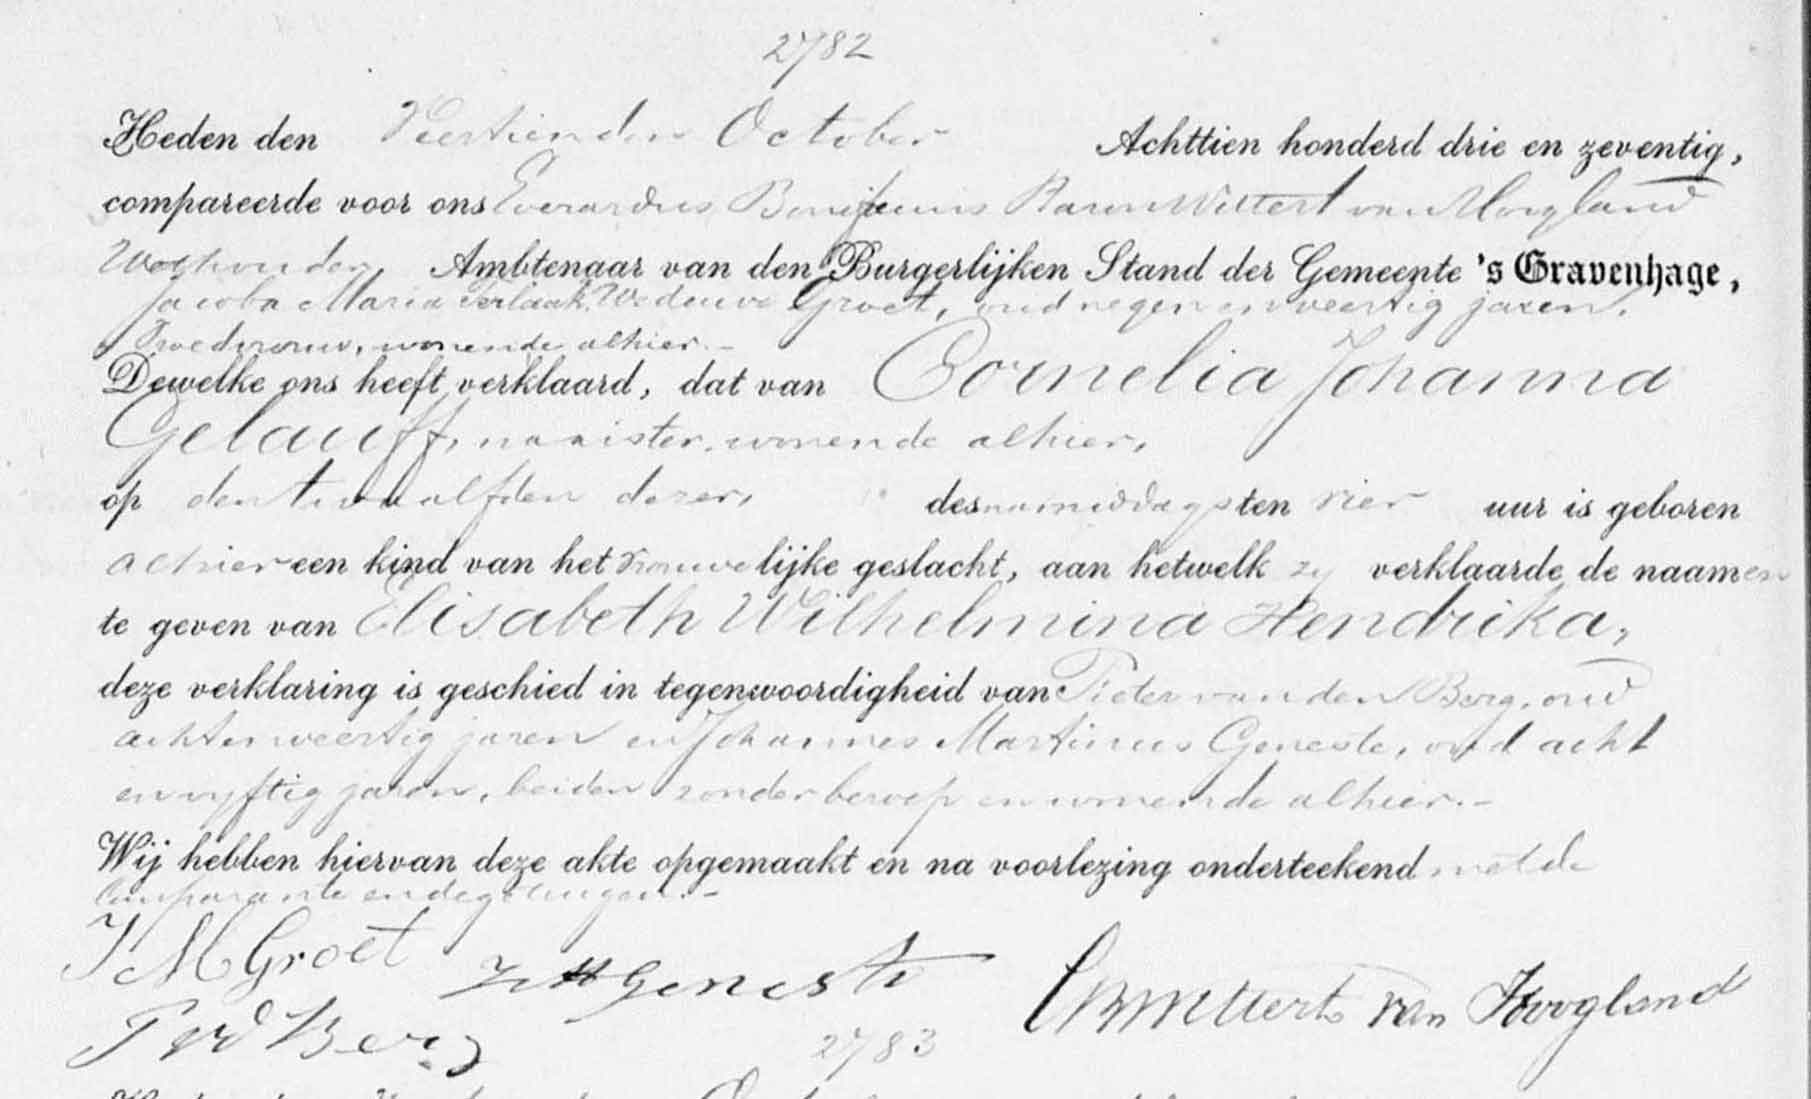 2782
Heden den Veertienden October Achttien honderd drie en zeventig,
compareerde voor ons Everardus Bonifacius Baron Wittert van Hoogland
Wethouder, Ambtenaar van den Burgerlijken Stand der Gemeente 's Gravenhage,
Jacoba Maria Terlaak, Weduwe Groet, oud negen en veertig jaren,
Vroedvrouw, wonende alhier.-
Dewelke ons heeft verklaard, dat van Cornelia Johanna
Gelauff, naaister, wonende alhier,
op den twaalfden dezer, des namiddags ten vier uur is geboren
alhier een kind van het vrouwelijke geslacht, aan hetwelk zij verklaarde de naamen
te geven van Elisabeth Wilhelmina Hendrika,
deze verklaring is geschied in tegenwoordigheid van Pieter van den Berg, oud
achtenveertig jaren en Johannes Martinus Geneste, oud acht
en vyftig jaren, beiden zonder beroep en wonende alhier.-
Wij hebben hiervan deze akte opgemaakt en na voorlezing onderteekend met de
Comparante en de getuigen.-
J M Groet
Geneste
P vd Berg
Wittert van Hoogland
2783